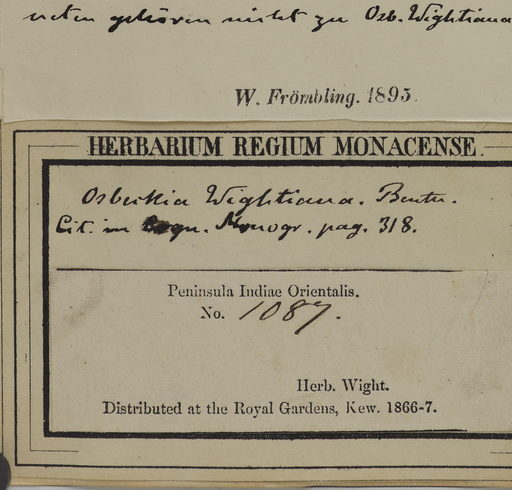 gehören nicht zu Osb. Wightiana
W. Frömbling. 1895.
HERBARIUM REGIUM MONACENSE.
Osbeckia Wightiana. Benth.
Cit. in Cogn. Monogr. pag. 318.
Peninsula Indiae Orientalis.
No. 1087.
Herb. Wight.
Distributed at the Royal Gardens, Kew. 1866-7.